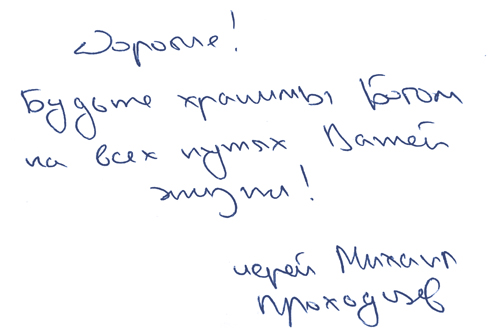 Дорогие!
Будьте хранимы Богом
на всех путях Вашей
жизни!
иерей Михаил
Проходцев